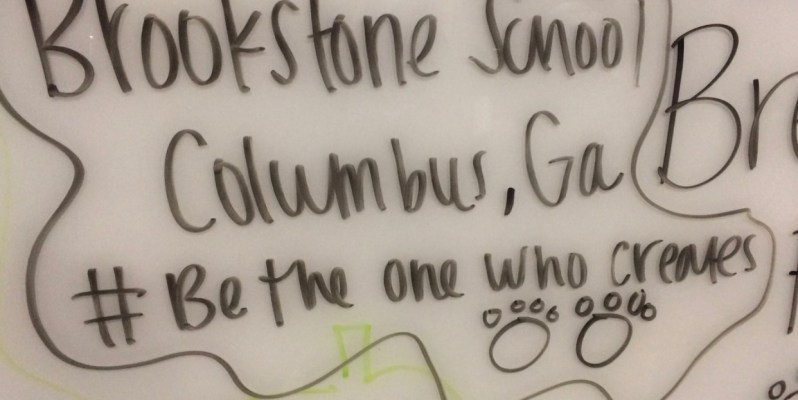 Brookstone School
Columbus, Ga
# Be the one who creates
Br